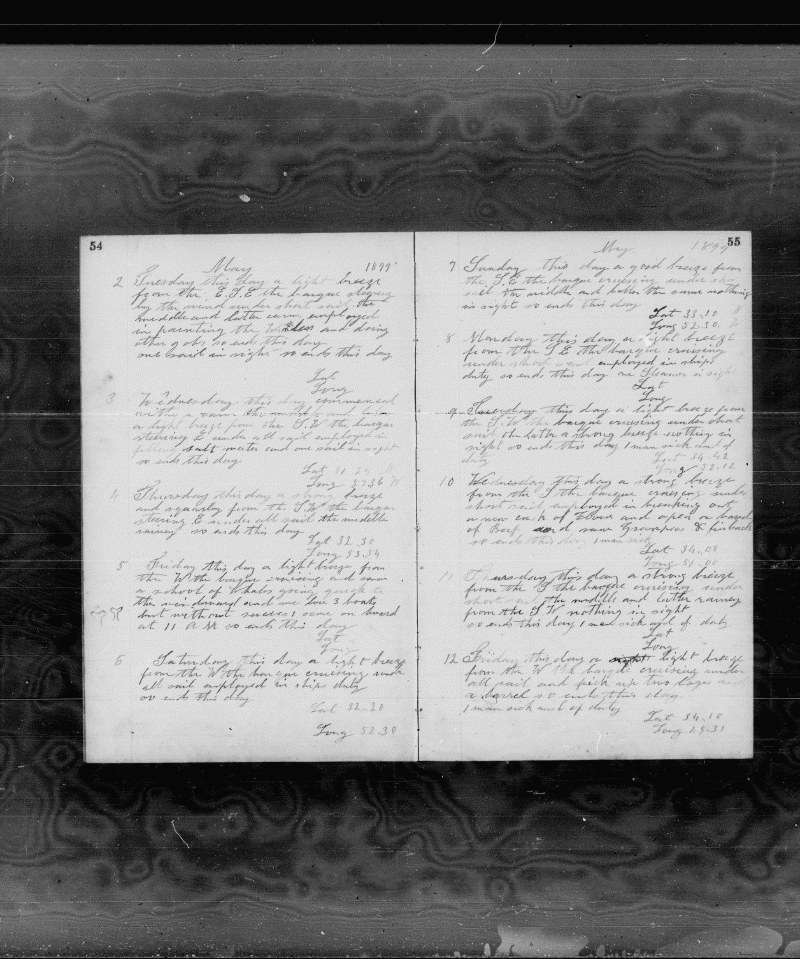 54
May 1899
2 Tuesday this day a light breeze
from the E.S.E the barque steering
by the wind under short sail the
middle and latter earm employed
in painting the and doing
other gobs so ends this day
one sail in night so ends this day
Lat
Long
3 Wednesday this day commenced
with a rain the middle and
a light breeze from the S.W. the barque
steering E under all sail employed in
salt water and one sail in night
so ends this day
Lat 31
Long 57.36 W
4 Thursday this day a strong breeze
and squarly from the S.W the barque
steering E under all sail the middle
rainey so ends this day
Lat 32.30
Long 53.54
5 Friday this day a light breeze from
the W the barque cruising and saw
a school of whales going quick to
the win doward and we low 3 boats
but without sucess come on board
at 11 A M so ends this day
Lat
Long
6 Saturday this day a light breeze
from the W the barque cruising under
all sail employed in ships duty
so ends this day
Lat 32.30
Long 52.30
55
May 1899
7 Sunday this day a good breeze from
the S.E the barque cruising under
sail the middle and latter the same nothing
in night so ends this day
Lat 33.10 N
Long 52.30 W
8 Monday this day a light breeze
from the S.E the barque cruising
under short sail employed in ships
duty so ends this day one Steamer in night
Lat
Long
9 Tuesday this day a light breeze from
the S.W the barque cruising under short
sail the latter a strong breeze nothing in
night so ends this day 1 man sick and of
duty
Lat 34.42
Long 52.12
10 Wednesday this day a strong breeze
from the S the barque cruising under
short sail employed in breaking out
a new cask of and open a barrel
of Beef and saw Grampuses & finback
so ends this day 1 man sick
Lat 34.08
Long 51.00
11 Thursday this day a strong breeze
from the S the barque cruising under
short sail the middle and latter rainey
from the S.W nothing in sight
so ends this day 1 man sick and of duty
Lat
Long
12 Friday this day a light breeze
from the W the barque cruising under
all sail and pick up two and
a barrel so ends this day
1 man sick and of duty
Lat 34.18
Long 49.31